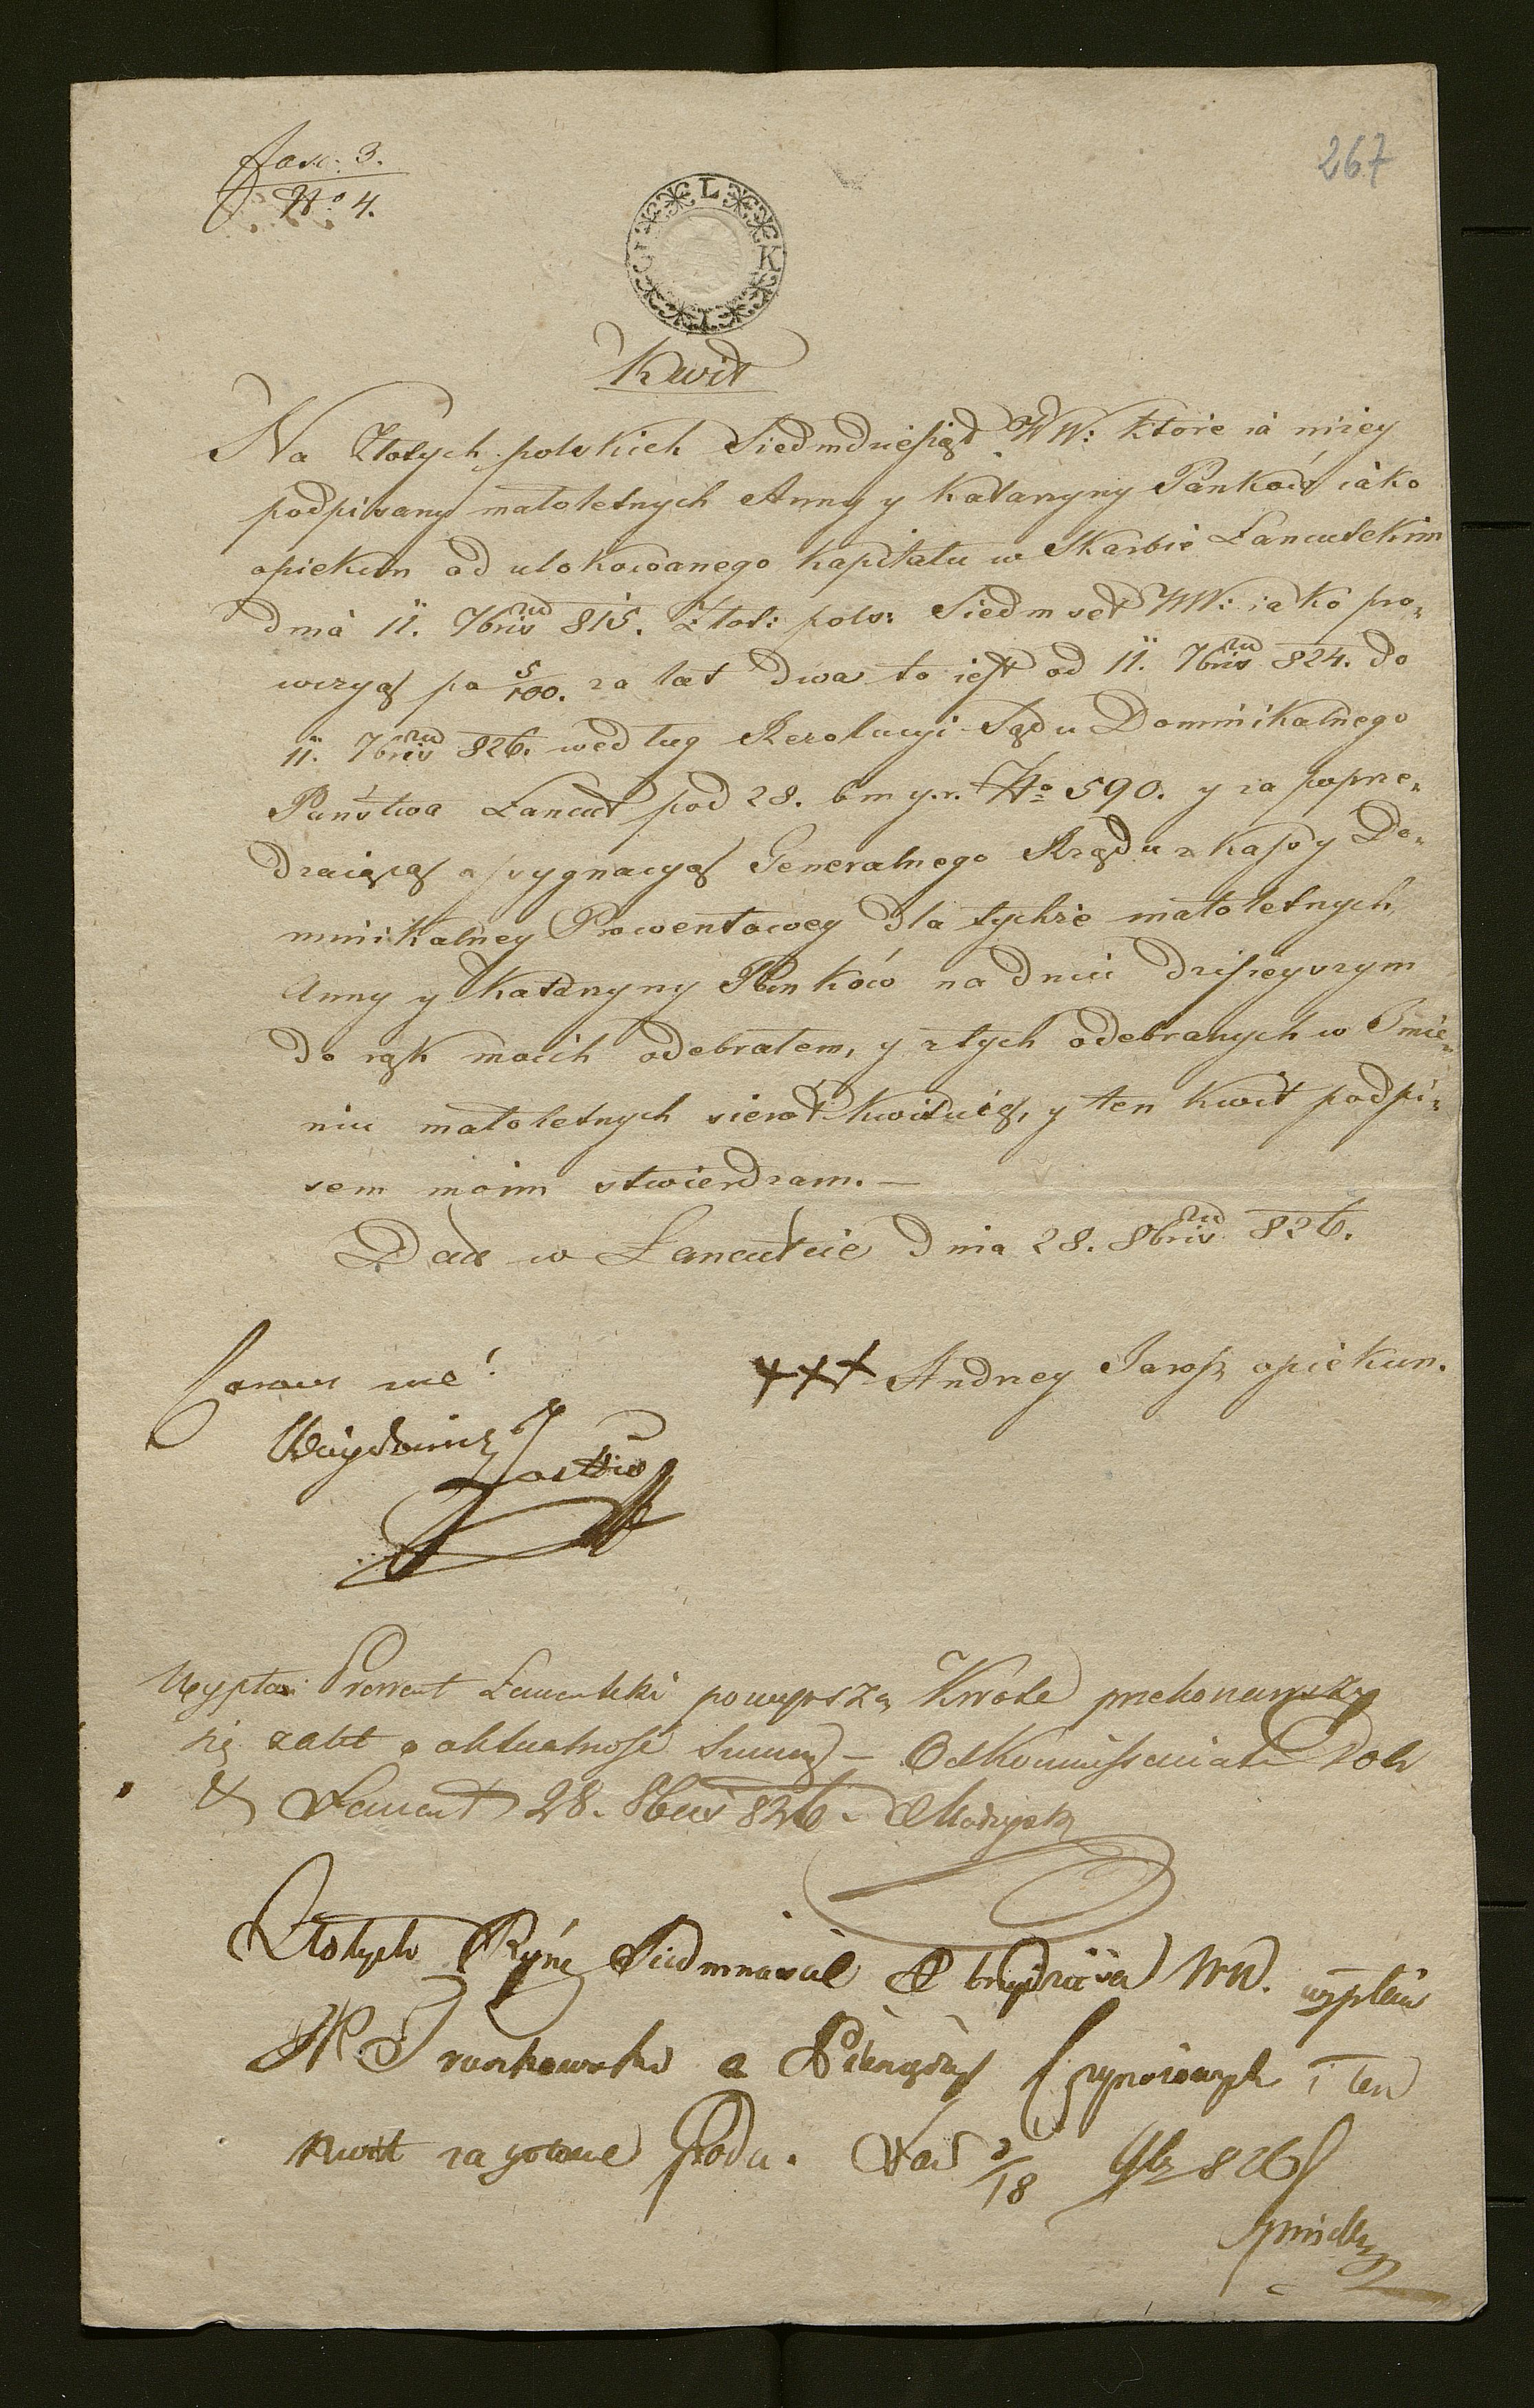 fasc: 3.
No 4.
267
L
K
Kwit
Na Złotych polskich Siedmdziesiąt WW: które ia niżey
podpisany małoletnych Anny y Katarzyny Pankow iako
opiekun od ulokowanego kapitału w Skarbie Łancutskim
dnia 11. 7bris 815. Złot: pols: Siedmset WW: iako pro-
wizyą po 5/100. za lat dwa to iest od 11. 7bris 824. do
11. 7bris 826. według Rezolucyi Sądu Dominikalnego
Państwa Łancut pod 28. bm y.r. No 590. y za poprze-
dzaiącą assygnacyą Generalnego Rządu z kassy Do-
minikalney Prowentowey dla tychże małoletnych
Anny y Katarzyny Panków na dniu dzisieyszym
do rąk moich odebrałem, y z tych odebranych w Imie-
niu małoletnych sierot kwituię, y ten kwit podpi-
sem moim stwierdzam. —
Dat w Łancutcie dnia 28. 8bris 826.
Coram me!
+++ Andrzey Jarosz opiekun.
Wypłaci Prowent Łancutski powyższą Kwotę przekonawszy
się o aktualności Summy — Od Kommissariatu Dobr
Łancut 28. 8bris 826.
Złotych Ryń: Siedmnaście WW. wypłaci
i ten
kwit za gotowe poda. 826